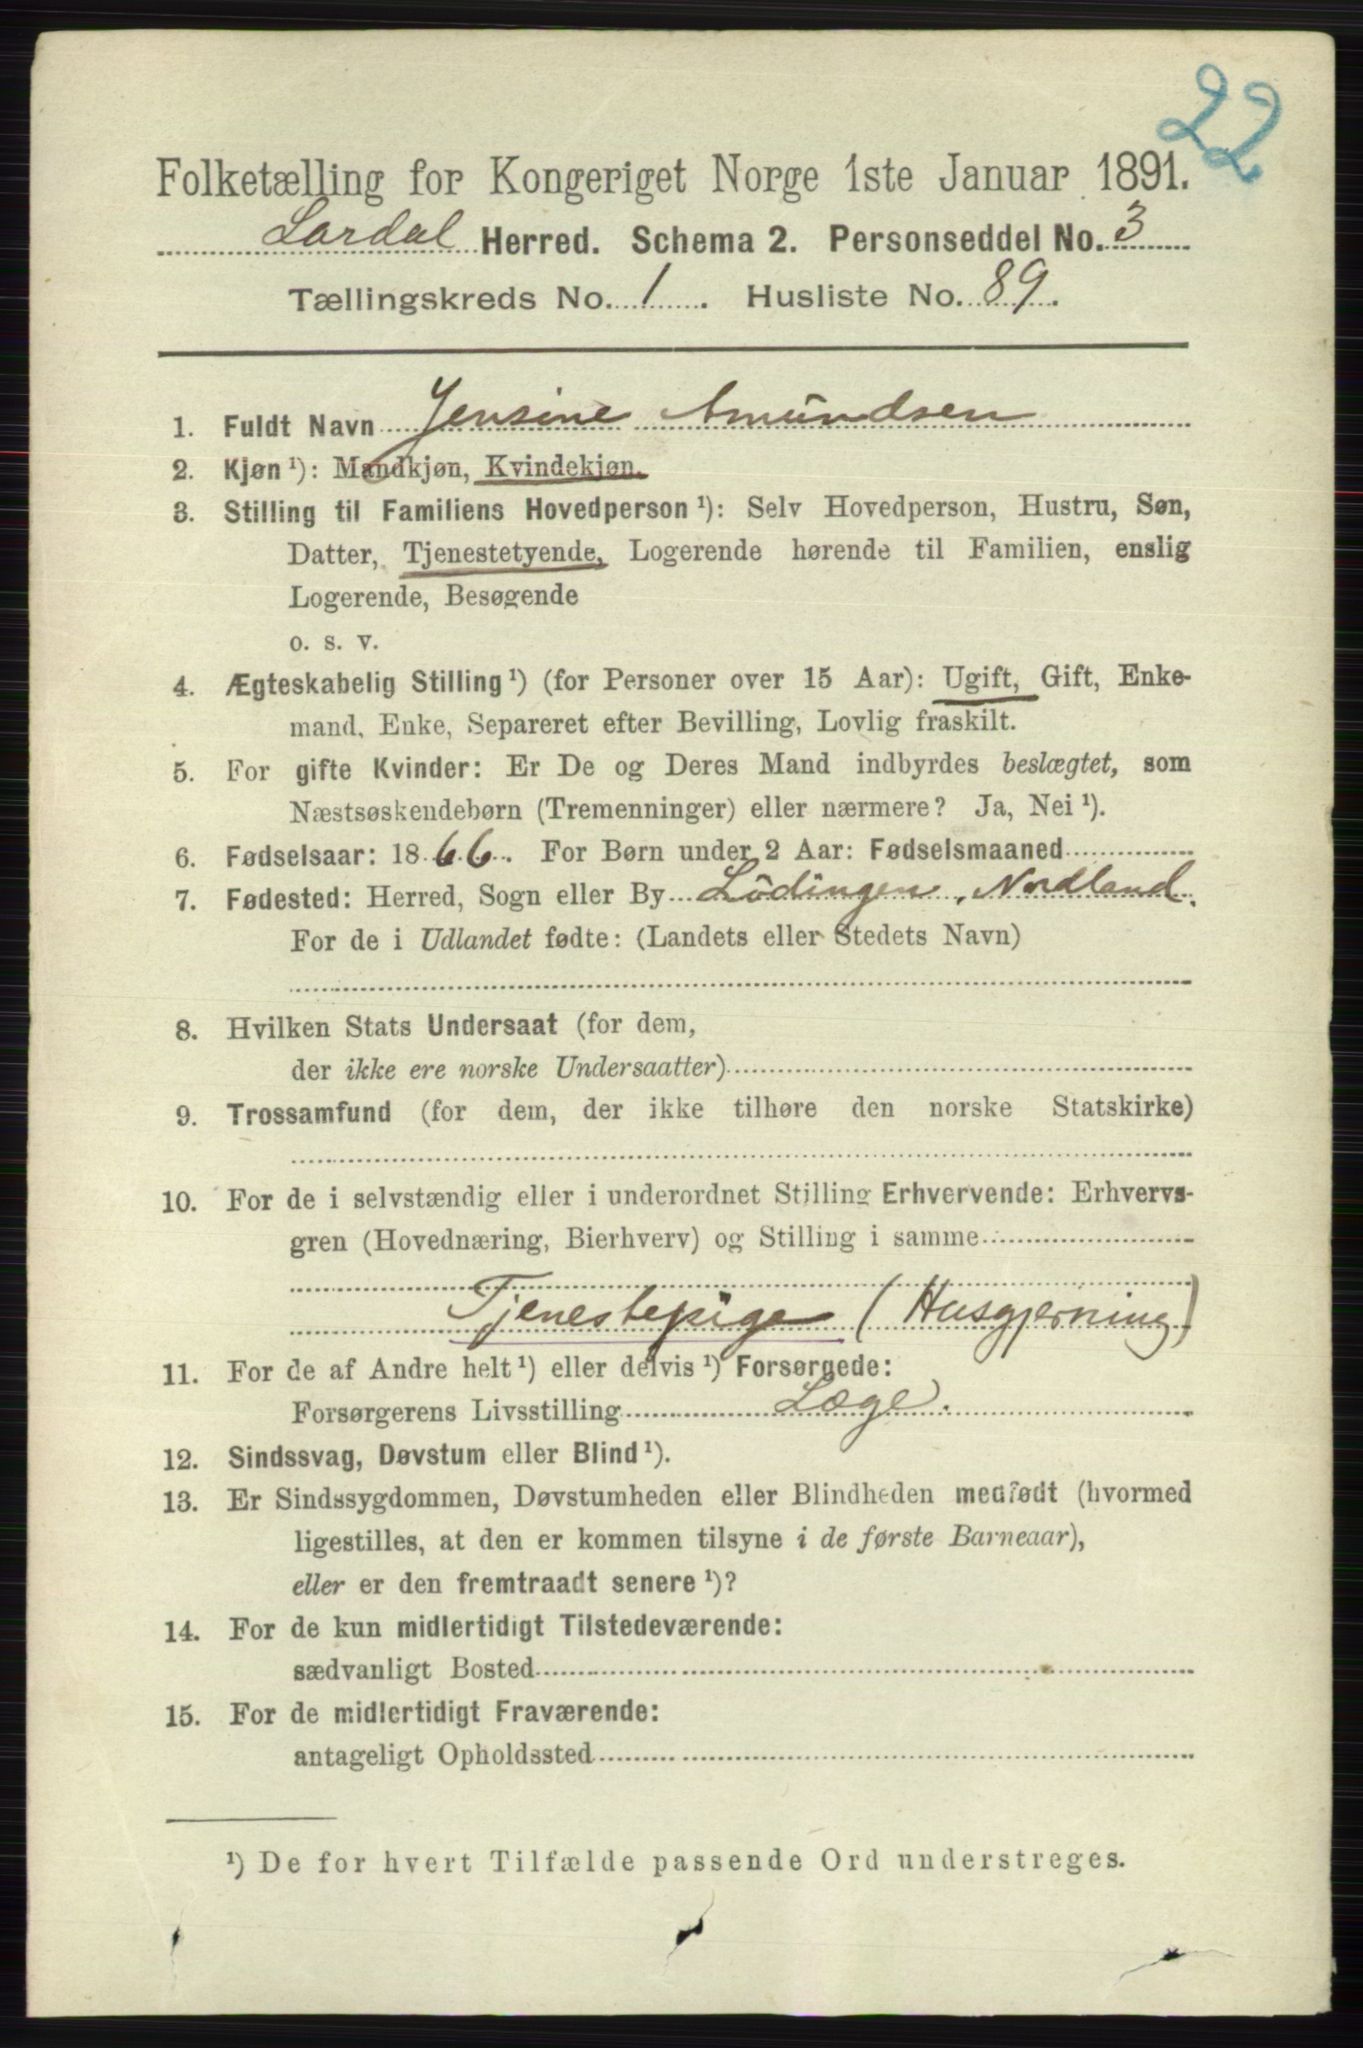 22
Folketælling for Kongeriget Norge 1ste Januar 1891.
Lardal Herred. Schema 2. Personseddel No. 3
Tællingskreds No. 1. Husliste No. 89.
1. Fuldt Navn Jensine Amundsen
2. Kjøn ¹): Mandkjøn, Kvindekjøn.
3. Stilling til Familiens Hovedperson ¹): Selv Hovedperson, Hustru, Søn,
Datter, Tjenestetyende, Logerende hørende til Familien, enslig
Logerende, Besøgende
o. s. v.
4. Ægteskabelig Stilling ¹) (for Personer over 15 Aar): Ugift, Gift, Enke-
mand, Enke, Separeret efter Bevilling, Lovlig fraskilt.
5. For gifte Kvinder: Er De og Deres Mand indbyrdes beslægtet, som
Næstsøskendebørn (Tremenninger) eller nærmere? Ja, Nei ¹).
6. Fødselsaar: 1866. For Børn under 2 Aar: Fødselsmaaned
7. Fødested: Herred, Sogn eller By Lödingen, Nordland.
For de i Udlandet fødte: (Landets eller Stedets Navn)
8. Hvilken Stats Undersaat (for dem,
der ikke ere norske Undersaatter)
9. Trossamfund (for dem, der ikke tilhøre den norske Statskirke)
10. For de i selvstændig eller i underordnet Stilling Erhvervende: Erhvervs-
gren (Hovednæring, Bierhverv) og Stilling i samme
Tjenestepige (Husgjerning)
11. For de af Andre helt ¹) eller delvis ¹) Forsørgede:
Forsørgerens Livsstilling Læge.
12. Sindssvag, Døvstum eller Blind ¹).
13. Er Sindssygdommen, Døvstumheden eller Blindheden medfødt (hvormed
ligestilles, at den er kommen tilsyne i de første Barneaar),
eller er den fremtraadt senere ¹)?
14. For de kun midlertidigt Tilstedeværende:
sædvanligt Bosted
15. For de midlertidigt Fraværende:
antageligt Opholdssted
¹) De for hvert Tilfælde passende Ord understreges.